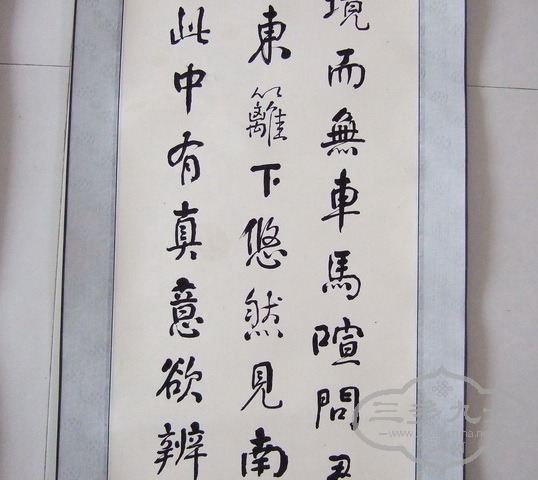 境而無車馬喧問君
東籬下悠然見南
此中有真意欲辨